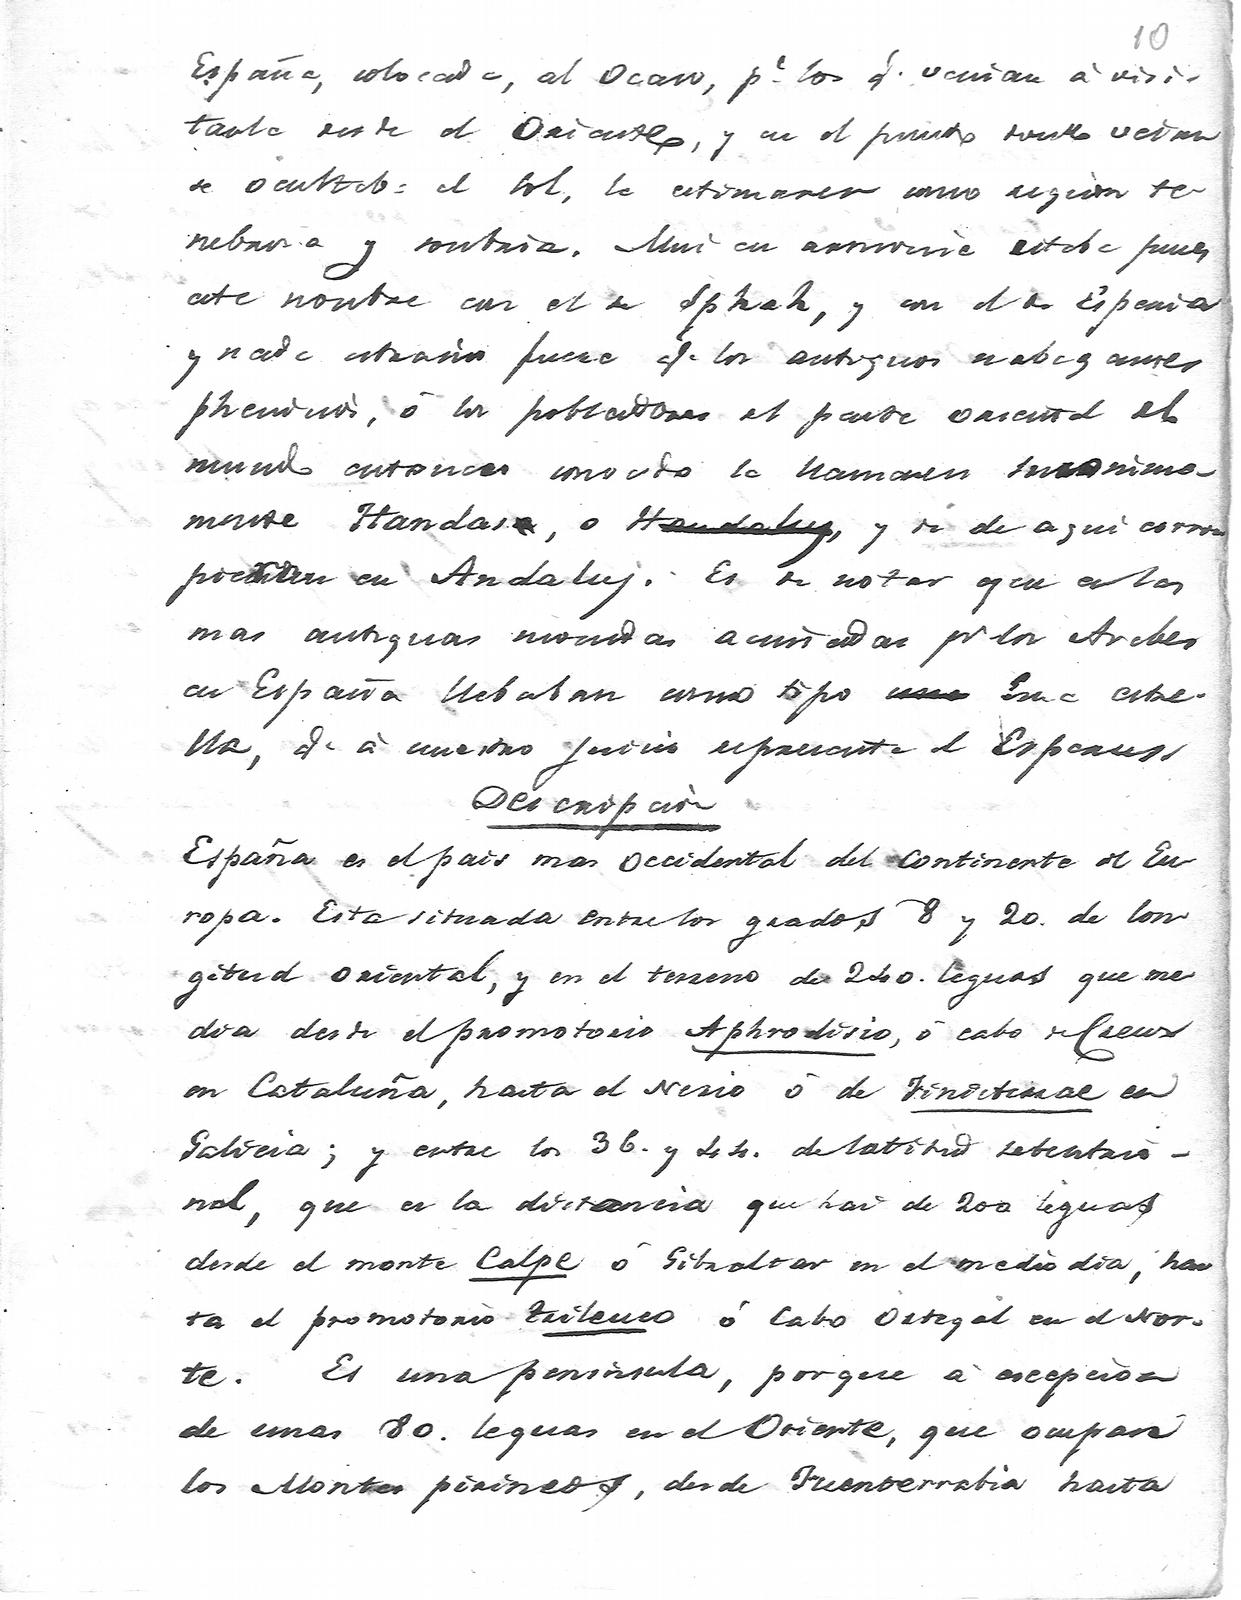 10
España, colocada, al Ocaso, pª los q. venian à visi-
tarla desde el Oriente, y en el punto donde veian
se ocultaba el Sol, la estimaron como region te-
nebrosa y sombria. Mui en armonia estaba pues
este nombre con el de Sphah, y con el de Esperia
y nada estraño fuera q.e los antiguos nabegantes
phenicios, ó los pobladores del parte oriental del
mundo entonces conocido la llamasen
mente Handas, o Handaluz, y de aqui corrom
en Andaluz. Es de notar que en las
mas antiguas monedas acuñadas pr los Arabes
en España llebaban como tipo una estre-
lla, q.e à nuestro juicio representa el
Descripcion
España es el pais mas occidental del continente de Eu-
ropa. Esta situada entre los grados 8 y 20. de lon-
gitud oriental, y en el terreno de 240. leguas que me-
dia desde el promotorio Aphrodisio, ó cabo de Creux
en Cataluña, hasta el Nerio ó de Finisterrae en
Galicia; y entre los 36. y 44. de latitud setentrio-
nal, que es la distancia que hai de 200 leguas
desde el monte Calpe ó Gibraltar en el medio dia, has
ta el promotorio Trileuco ó Cabo Ortegal en el Nor-
te. Es una peninsula, porque à escepcion
de unas 80. leguas en el Oriente, que ocupan
los Montes pirineos, desde Fuenterrabia hasta